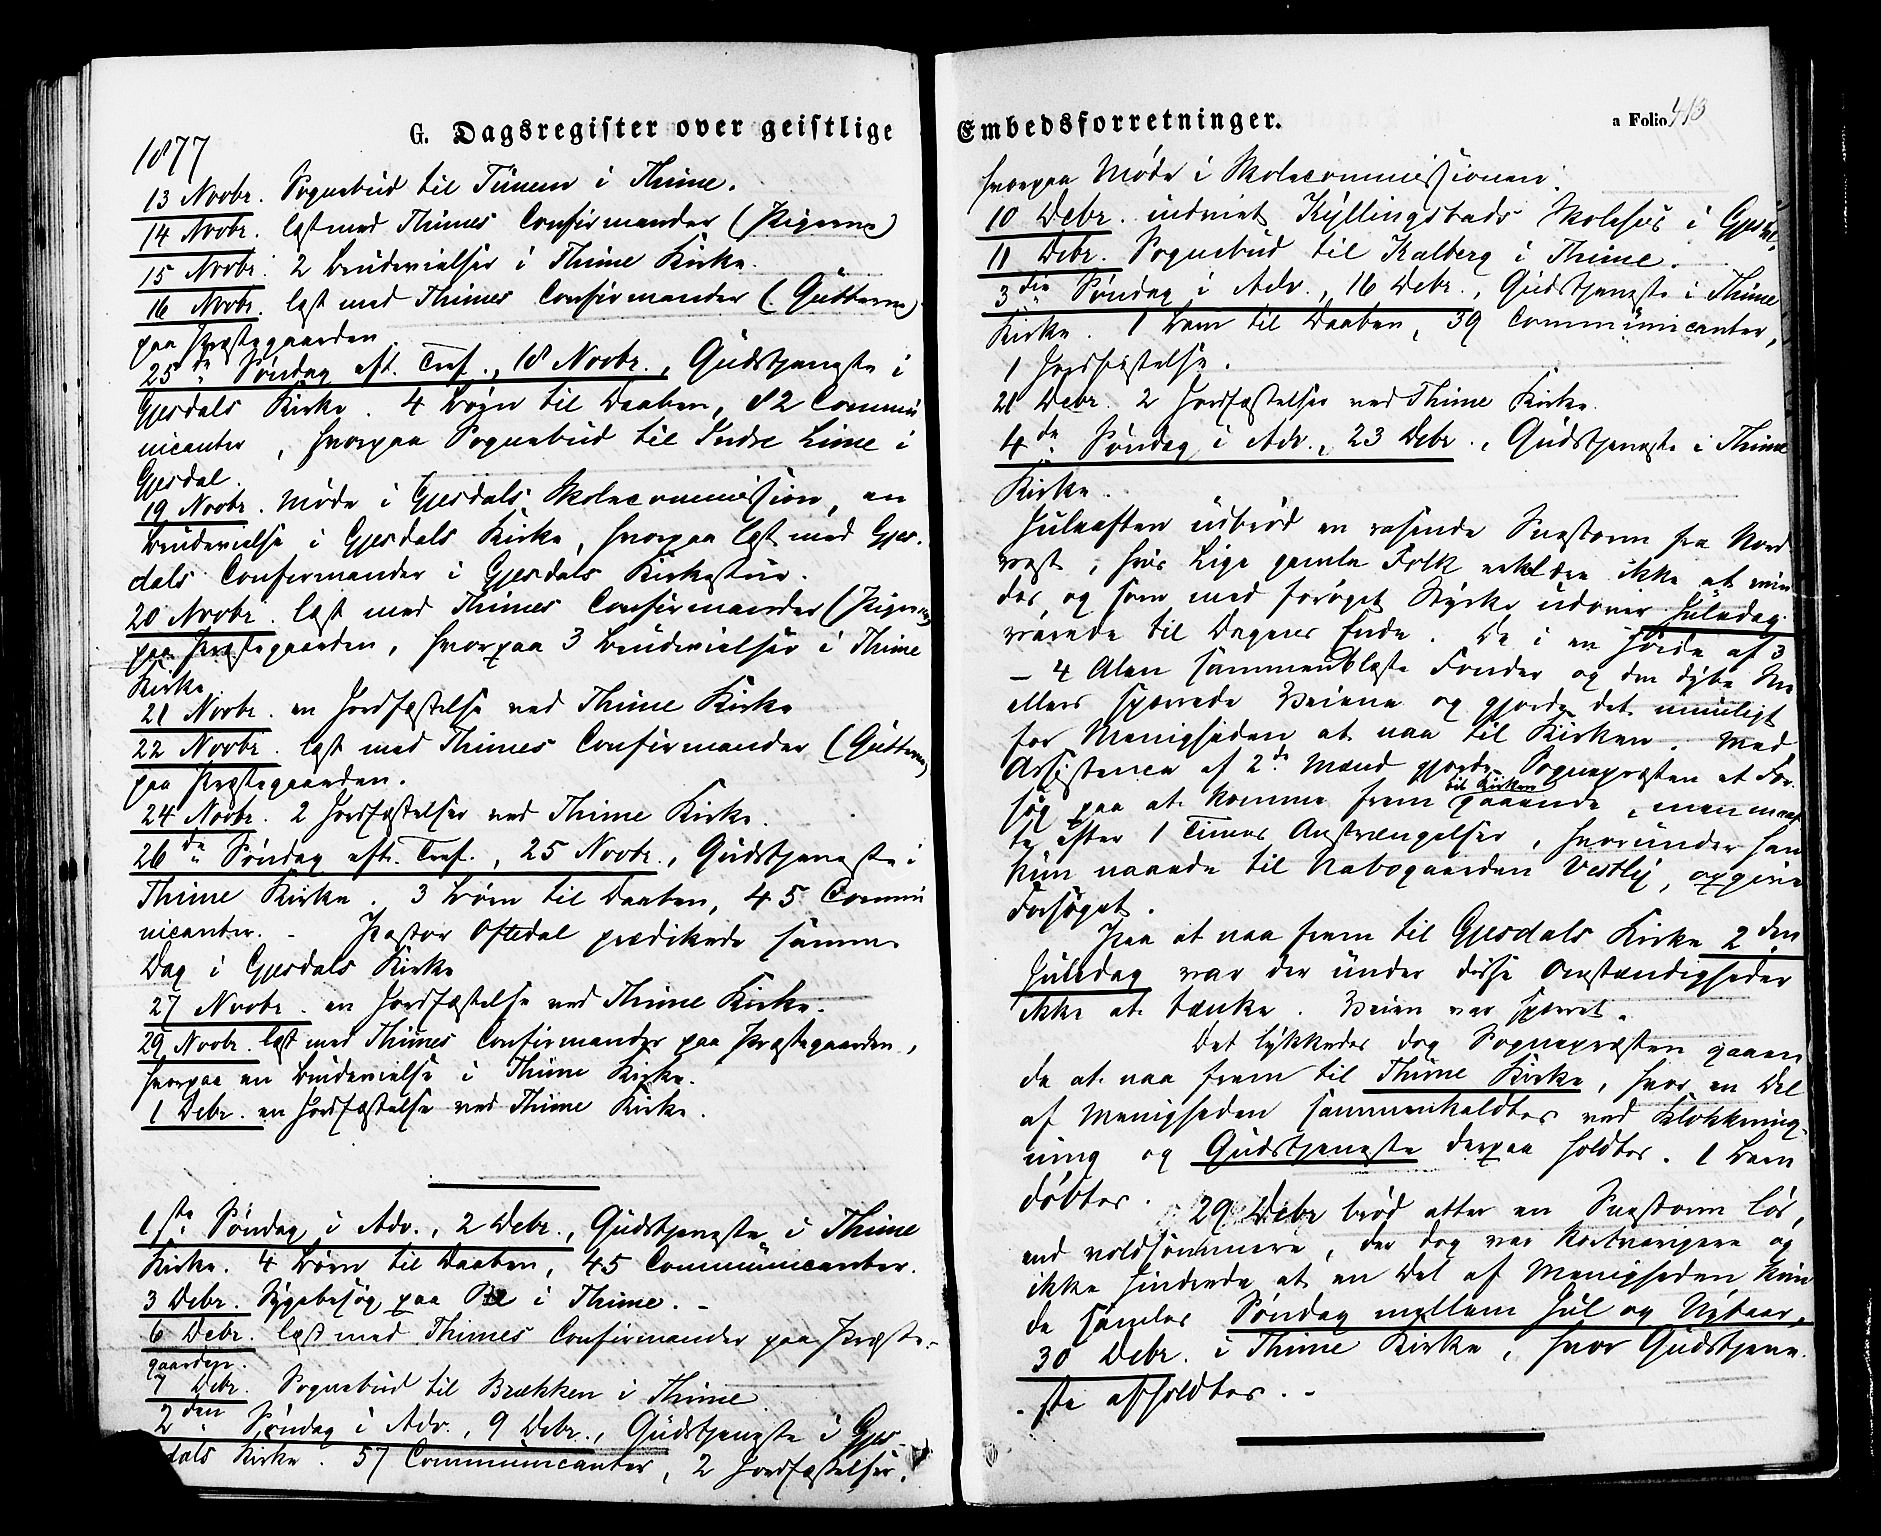 G. Dagsregister over geistlige
1877
13 Novbr. Sognebud til Tunem i Thime.
14 Novbr. læst med Thimes Confirmander (Pigerne)
15 Novbr. 2 Brudevielser i Thime Kirke.
16 Novbr. læst med Thimes Confirmander (Gutterne)
paa Præstegaarden.
25de Søndag eft. Tref., 18 Novbr., Gudstjeneste i
Gjesdals Kirke. 4 Børn til Daaben, 82 Commu
nicanter, hvorpaa Sognebud til Indre Lime i
Gjesdal.
19 Novbr. Møde i Gjesdals Skolecommission, en
Brudevielse i Gjesdals Kirke, hvorpaa læst med Gjes-
dals Confirmander i Gjesdals Kirkestue.
20 Novbr. læst med Thimes Confirmander (Pigerne)
paa Præstegaarden, hvorpaa 3 Brudevielser i Thime
Kirke.
21 Novbr. en Jordfæstelse ved Thime Kirke
22 Novbr. læst med Thimes Confirmander (Gutterne)
paa Præstegaarden.
24 Novbr. 2 Jordfæstelser ved Thime Kirke.
26de Søndag eft. Tref., 25 Novbr., Gudstjeneste i
Thime Kirke. 3 Børn til Daaben, 45 Commu
nicanter. - Pastor Oftedal prædikede samme
Dag i Gjesdals Kirke
27 Novbr. en Jordfæstelse ved Thime Kirke.
29 Novbr. læst med Thimes Confirmander paa Præstegaarden,
hvorpaa en Brudevielse i Thime Kirke.
1 Debr. en Jordfæstelse ved Thime Kirke.
1ste Søndag i Adv., 2 Debr., Gudstjeneste i Thime
Kirke. 4 Børn til Daaben, 45 Communicanter.
3 Debr. Sygebesøg paa i Thime. -
6 Debr. læst med Thimes Confirmander paa Præste-
gaarden.
7 Debr. Sognebud til Brækken i Thime.
2den Søndag i Adv., 9 Debr., Gudstjeneste i Gjes-
dals Kirke. 57 Communicanter, 2 Jordfæstelser,
Embedsforretninger.
a Folio 413
hvorpaa Møde i Skolecommissionen.
10 Debr. indviet Kyllingstads Skolehus i Gjesdal.
11 Debr. Sognebud til Kalberg i Thime.
3die Søndag i Adv., 16 Debr., Gudstjeneste i Thime
Kirke. 1 Barn til Daaben, 39 Communicanter,
1 Jordfæstelse.
21 Debr. 2 Jordfæstelser ved Thime Kirke.
4de Søndag i Adv., 23 Debr., Gudstjeneste i Thime
Kirke.
Juleaften udbrød en rasende Snestorm fra Nord
vest, hvis Lige gamle Folk vel der ikke at min
des, og som med forøget Styrke udover Juledag
varede til Dagens Ende. De i en Høide af 3
- 4 Alen sammenblæste Fonder og den dybe Sne
ellers spærrede Veiene og gjorde det umuligt
for Menigheden at naa til Kirken. Med
Assistence af 2de Mænd gjorde Sognepræsten et For-
søg paa at komme frem til Kirken gaaende, men maat
te efter 1 Times Anstrængelser, hvorunder han
kun naaede til Nabogaarden Vestly, opgive
Forsøget.
Paa at naa frem til Gjesdals Kirke 2den
Juledag var der under disse Omstændigheder
ikke at tænke. Veien var spærret.
Det lykkedes dog Sognepræsten gaaen
de at naa frem til Thime Kirke, hvor en Del
af Menigheden sammenkaldtes ved Klokkering-
ning og Gudstjeneste derpaa holdtes. 1 Barn
døbtes.
29 Debr brød atter en Snestorm løs,
end voldsommere, der dog var kortvarigere og
ikke hindrede at en Del af Menigheden kun
de samles Søndag mellem Jul og Nytaar,
30 Debr. i Thime Kirke, hvor Gudstjene
ste afholdtes. -